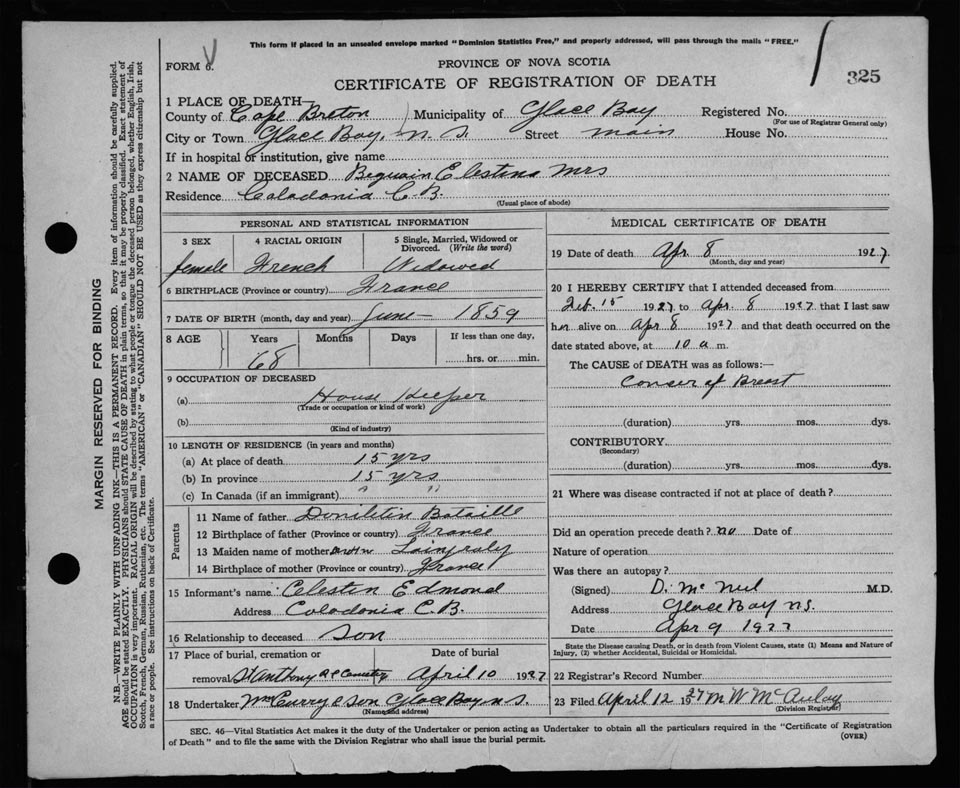 This form if placed in an unsealed envelope marked "Dominion Statistics Free," and properly addressed, will pass through the mails "FREE."
FORM 6.
PROVINCE OF NOVA SCOTIA
CERTIFICATE OF REGISTRATION OF DEATH
325
1 PLACE OF DEATH—
County of Cape Breton Municipality of Glace Bay Registered No.
(For use of Registrar General only)
City or Town Glace Bay, N. S. Street Main House No.
If in hospital or institution, give name
2 NAME OF DECEASED Beguain Elestina Mrs
Residence Caladonia C.B.
(Usual place of abode)
PERSONAL AND STATISTICAL INFORMATION
3 SEX 4 RACIAL ORIGIN 5 Single, Married, Widowed or Divorced. (Write the word)
female French Widowed
6 BIRTHPLACE (Province or country) France
7 DATE OF BIRTH (month, day and year) June — 1859
8 AGE Years Months Days If less than one day,
68 hrs. or min.
9 OCCUPATION OF DECEASED
(a) House Keeper
(Trade or occupation or kind of work)
(b)
(Kind of industry)
10 LENGTH OF RESIDENCE (in years and months)
(a) At place of death 15 yrs
(b) In province 15 yrs
(c) In Canada (if an immigrant) " "
Parents
11 Name of father Bataille
12 Birthplace of father (Province or country) France
13 Maiden name of mother
14 Birthplace of mother (Province or country) France
15 Informant's name: Celestin Edmond
Address Caladonia C.B.
16 Relationship to deceased Son
17 Place of burial, cremation or Date of burial
removal St Anthony R C Cemetry April 10 1927
18 Undertaker Wm Curry & Son Glace Bay N.S.
(Name and address)
MEDICAL CERTIFICATE OF DEATH
19 Date of death Apr. 8 1927
(Month, day and year)
20 I HEREBY CERTIFY that I attended deceased from
Feb. 15 1927 to Apr. 8 1927 that I last saw
her alive on Apr 8 1927 and that death occurred on the
date stated above, at 10 a m.
The CAUSE of DEATH was as follows:—
Conser of Breast
(duration) yrs. mos. dys.
CONTRIBUTORY
(Secondary)
(duration) yrs. mos. dys.
21 Where was disease contracted if not at place of death?
Did an operation precede death? no Date of
Nature of operation
Was there an autopsy?
(Signed) D. McNeil M.D.
Address Glace Bay N.S.
Date Apr 9 1927
State the Disease causing Death, or in death from Violent Causes, state (1) Means and Nature of
Injury, (2) whether Accidental, Suicidal or Homicidal.
22 Registrar's Record Number
23 Filed April 12 1927 M W McAulay
(Division Registrar)
SEC. 46—Vital Statistics Act makes it the duty of the Undertaker or person acting as Undertaker to obtain all the particulars required in the "Certificate of Registration
of Death" and to file the same with the Division Registrar who shall issue the burial permit.
(OVER)
MARGIN RESERVED FOR BINDING
N.B.—WRITE PLAINLY WITH UNFADING INK—THIS IS A PERMANENT RECORD. Every item of information should be carefully supplied.
AGE should be stated EXACTLY. PHYSICIANS should STATE CAUSE OF DEATH in plain terms, so that it may be properly classified. Exact statement of
OCCUPATION is very important. RACIAL ORIGIN will be described by stating to what people or tongue the deceased person belonged, whether English, Irish,
Scotch, French, German, Russian, Ruthenian, etc. The terms "AMERICAN" or "CANADIAN" SHOULD NOT BE USED as they express citizenship but not
a race or people. See instructions on back of Certificate.